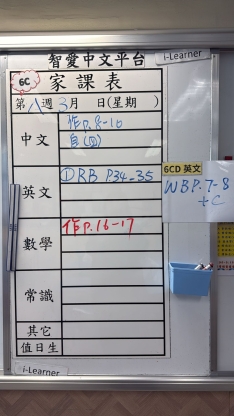 智愛中文平台
i-Learner
6C
家課表
第八週3月 日(星期 )
中文
作p.8-10
自(四)
英文
①RB P.34-35
6CD 英文
WBP.7-8
+C
數學
作p.16-17
常識
其它
值日生
i-Learner